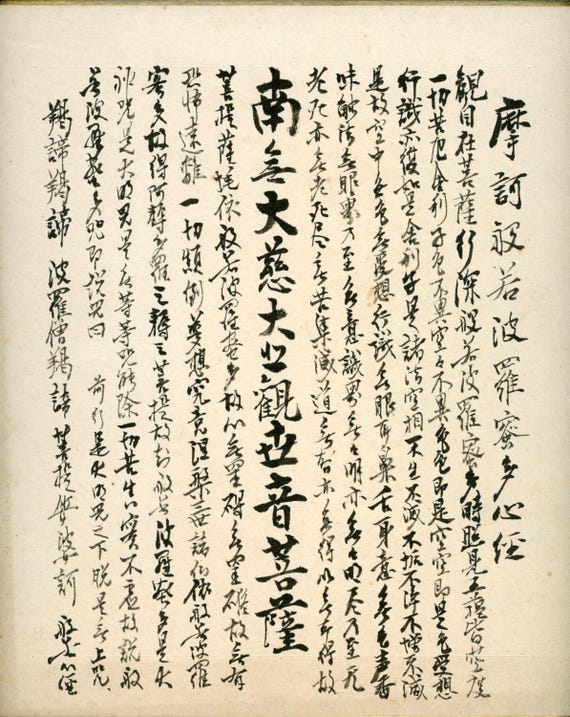 摩訶般若波羅蜜多心経
観自在菩薩行深般若波羅蜜多時照見五蘊皆空度
一切苦厄舎利子色不異空空不異色色即是空空即是色受想
行識亦復如是舎利子是諸法空相不生不滅不垢不浄不増不減
是故空中無色無受想行識無眼耳鼻舌身意無色声香
味触法無眼界乃至無意識界無無明亦無無明尽乃至無
老死亦無老死尽無苦集滅道無智亦無得以無所得故
南無大慈大悲観世音菩薩
菩提薩埵依般若波羅蜜多故心無罣礙無罣礙故無有
恐怖遠離一切顛倒夢想究竟涅槃三世諸仏依般若波羅
蜜多故得阿耨多羅三藐三菩提故知般若波羅蜜多是大
神咒是大明咒是無等等咒能除一切苦真実不虚故説般
若波羅蜜多咒即説咒曰 前行是大明咒之下脱是無上咒
羯諦羯諦 波羅僧羯諦 菩提薩婆訶 般若心経